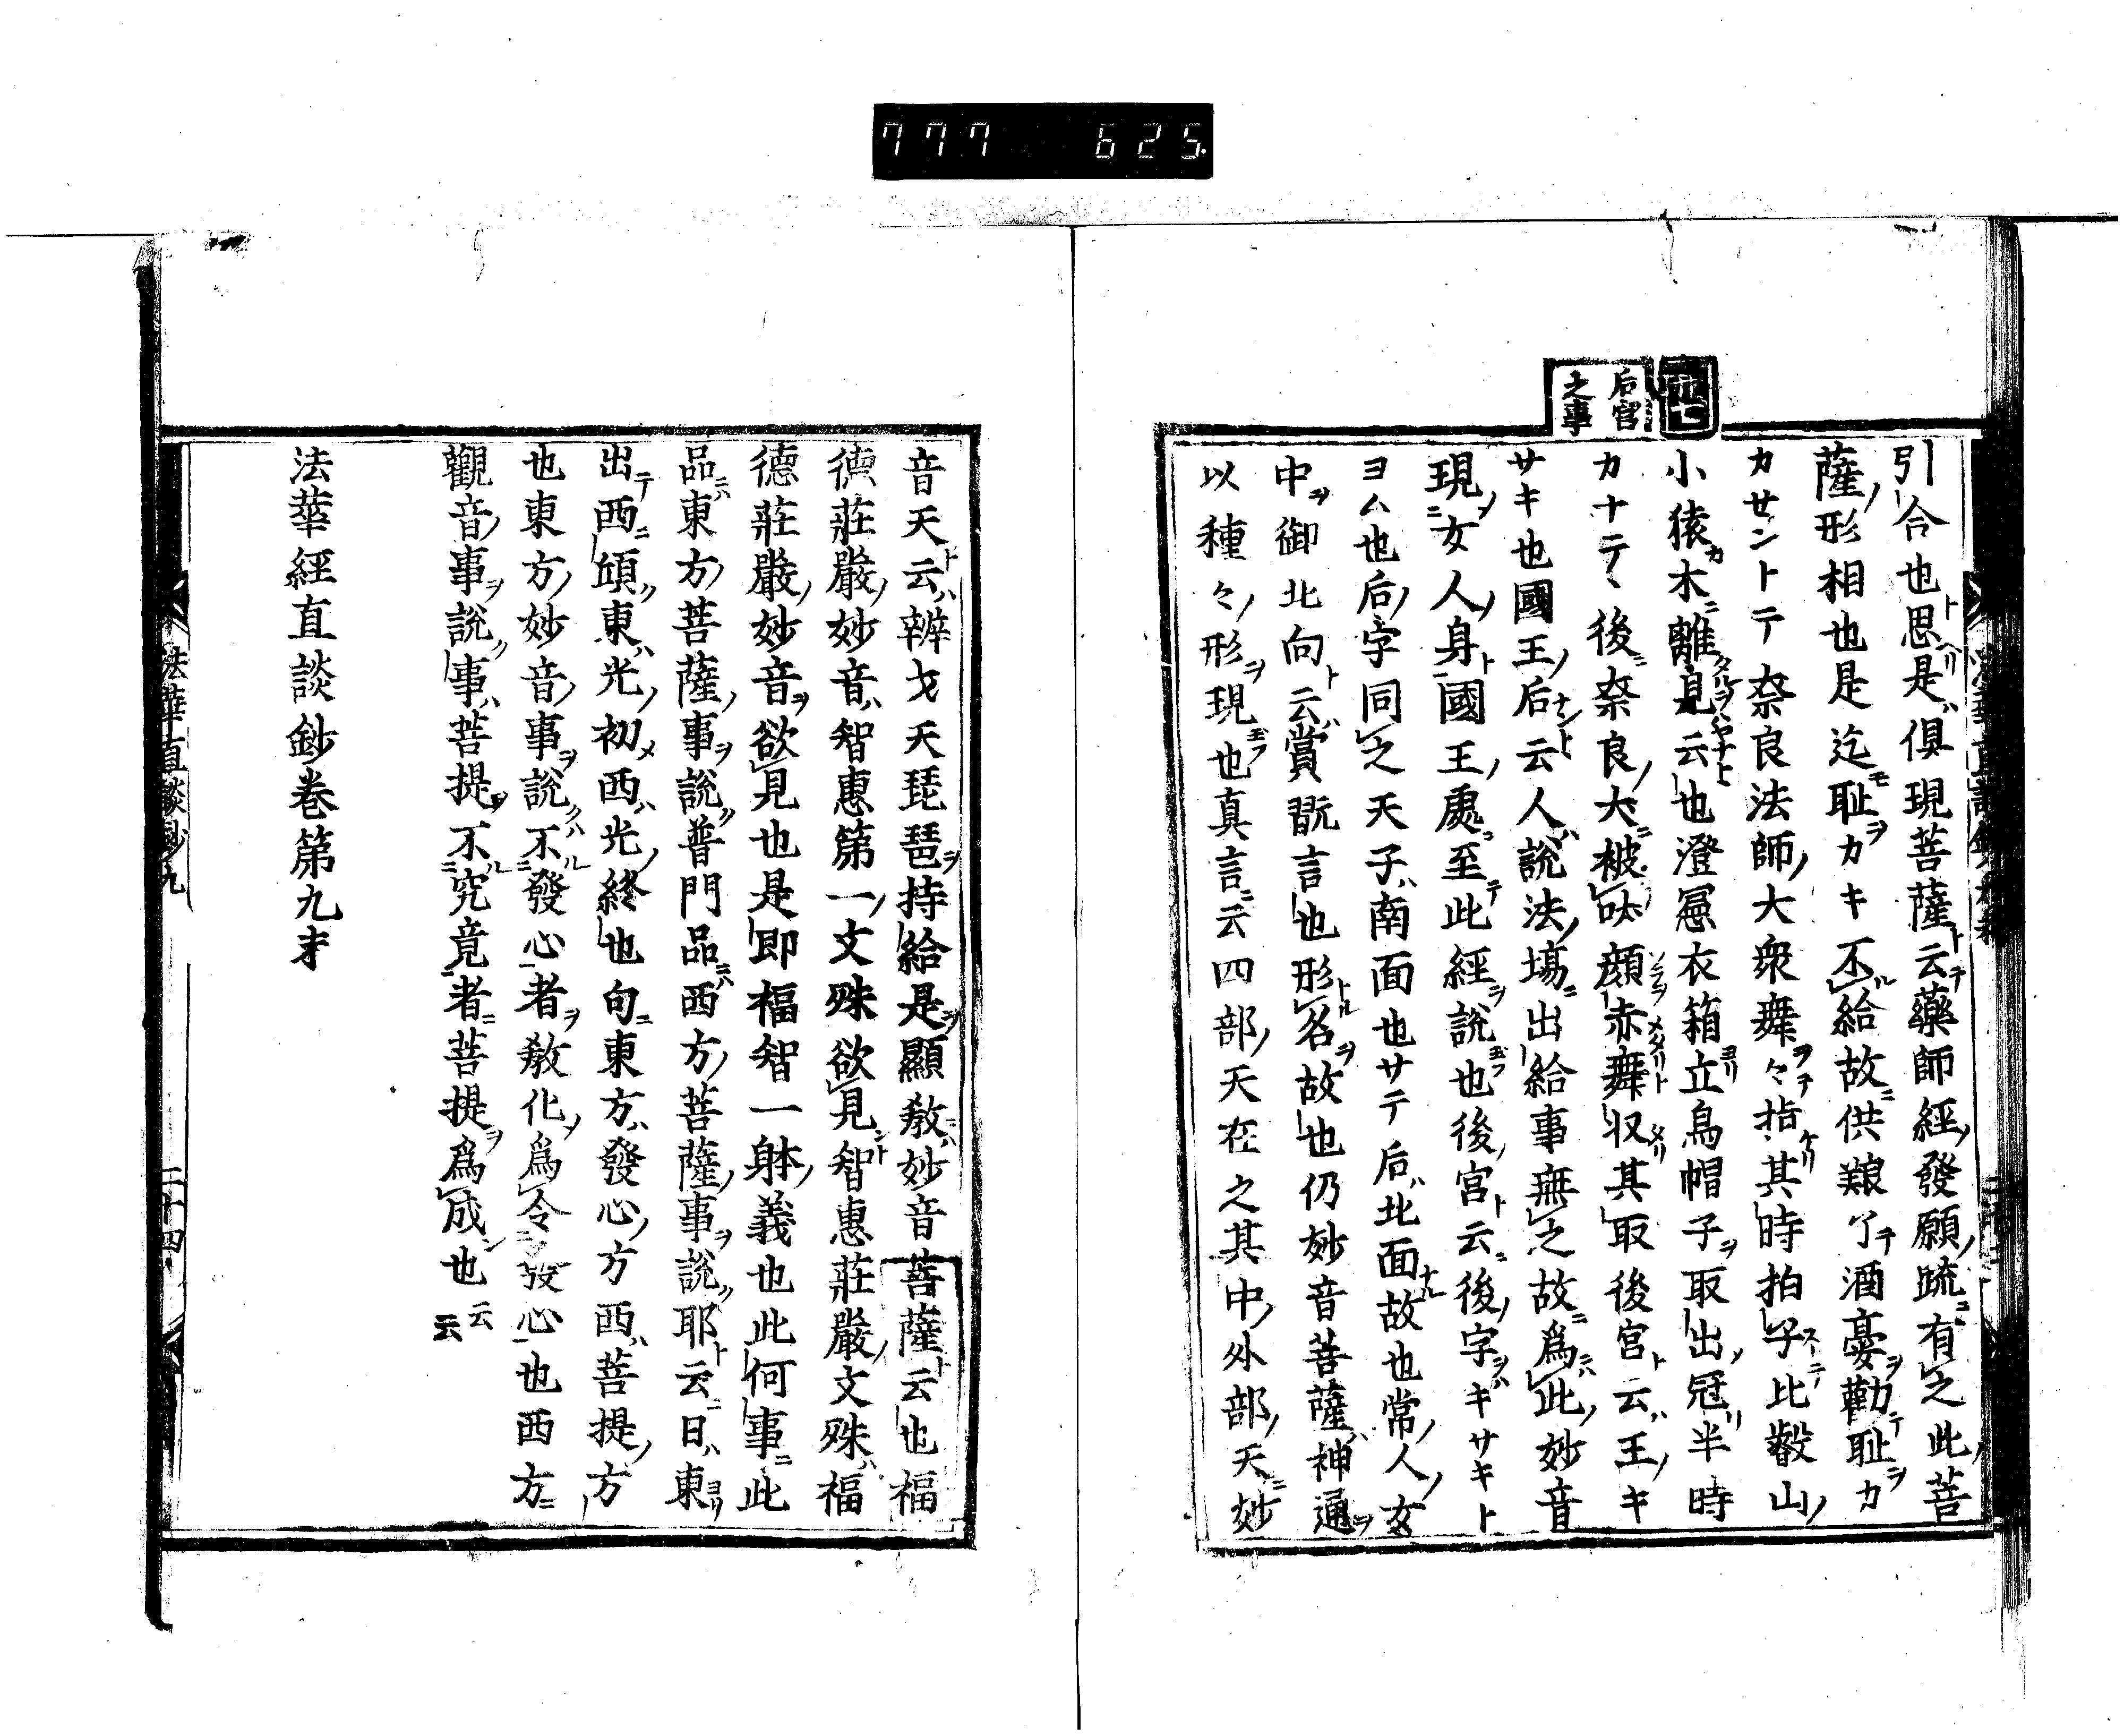 777 625.
后宮
之事
引合也思是俱現菩薩云藥師經發願疏有之此菩
薩形相也是迄恥カキ不給故供粮了酒憂勸恥カ
カサントテ奈良法師大衆舞々指其時拍子比叡山
小猿木離見云也澄憲衣箱立烏帽子取出冠半時
カナテヽ後奈良大被咲顔赤舞収其取後宮云王キ
サキ也國王后云人說法塲出給事無之故爲此妙音
現女人身國王處至此經說也後宮云後字キサキト
ヨム也后字同之天子南面也サテ后北面故也常人女
中御北向云賞翫言也形名故也仍妙音菩薩神通
以種々形現也真言云四部天在之其中外部天妙
音天云辨才天琵琶持給是顯教妙音菩薩云也福
德莊嚴妙音智惠第一文殊欲見智惠莊嚴文殊福
德莊嚴妙音欲見也是即福智一躰義也此何事此
品東方菩薩事說普門品西方菩薩事說耶云日東
出西傾東光初西光終也旬東方發心方西菩提方
也東方妙音事說不發心者教化爲令發心也西方
觀音事說事菩提不究竟者菩提爲成也云云
法華經直談鈔卷第九末
法華直談鈔九
二十四